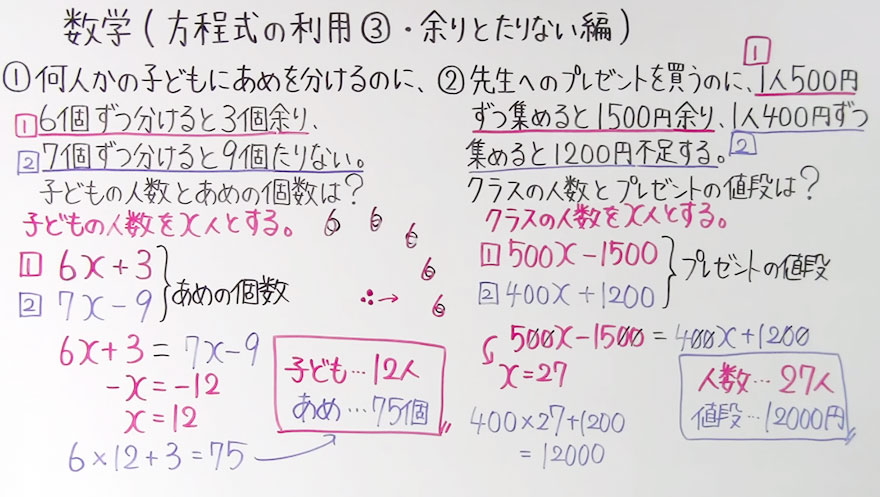 数学(方程式の利用③・余りとたりない編)
①何人かの子どもにあめを分けるのに、
1 6個ずつ分けると3個余り、
2 7個ずつ分けると9個たりない。
子どもの人数とあめの個数は?
子どもの人数をx人とする。
6 6 6 6 6
1 6x+3
2 7x-9
あめの個数
∴→
6x+3=7x-9
-x=-12
x=12
6×12+3=75
子ども…12人
あめ…75個
②先生へのプレゼントを買うのに、1人500円
1
ずつ集めると1500円余り、1人400円ずつ
集めると1200円不足する。2
クラスの人数とプレゼントの値段は?
クラスの人数をx人とする。
1 500x-1500
2 400x+1200
プレゼントの値段
500x-1500=400x+1200
x=27
400×27+1200
=12000
人数…27人
値段…12000円